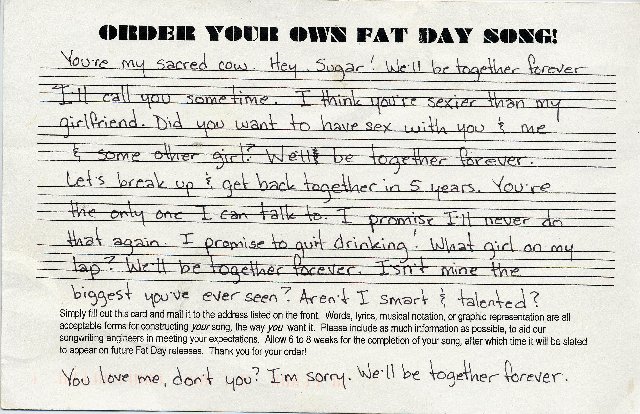 ORDER YOUR OWN FAT DAY SONG!
You're my sacred cow. Hey Sugar! We'll be together forever
I'll call you sometime. I think you're sexier than my
girlfriend. Did you want to have sex with you & me
& some other girl? We'll be together forever.
Let's break up & get back together in 5 years. You're
the only one I can talk to. I promise I'll never do
that again. I promise to quit drinking! What girl on my
lap? We'll be together forever. Isn't mine the
biggest you've ever seen? Aren't I smart & talented?
Simply fill out this card and mail it to the address listed on the front. Words, lyrics, musical notation, or graphic representation are all
acceptable forms for constructing your song, the way you want it. Please include as much information as possible, to aid our
songwriting engineers in meeting your expectations. Allow 6 to 8 weeks for the completion of your song, after which time it will be slated
to appear on future Fat Day releases. Thank you for your order!
You love me, don't you? I'm sorry. We'll be together forever.